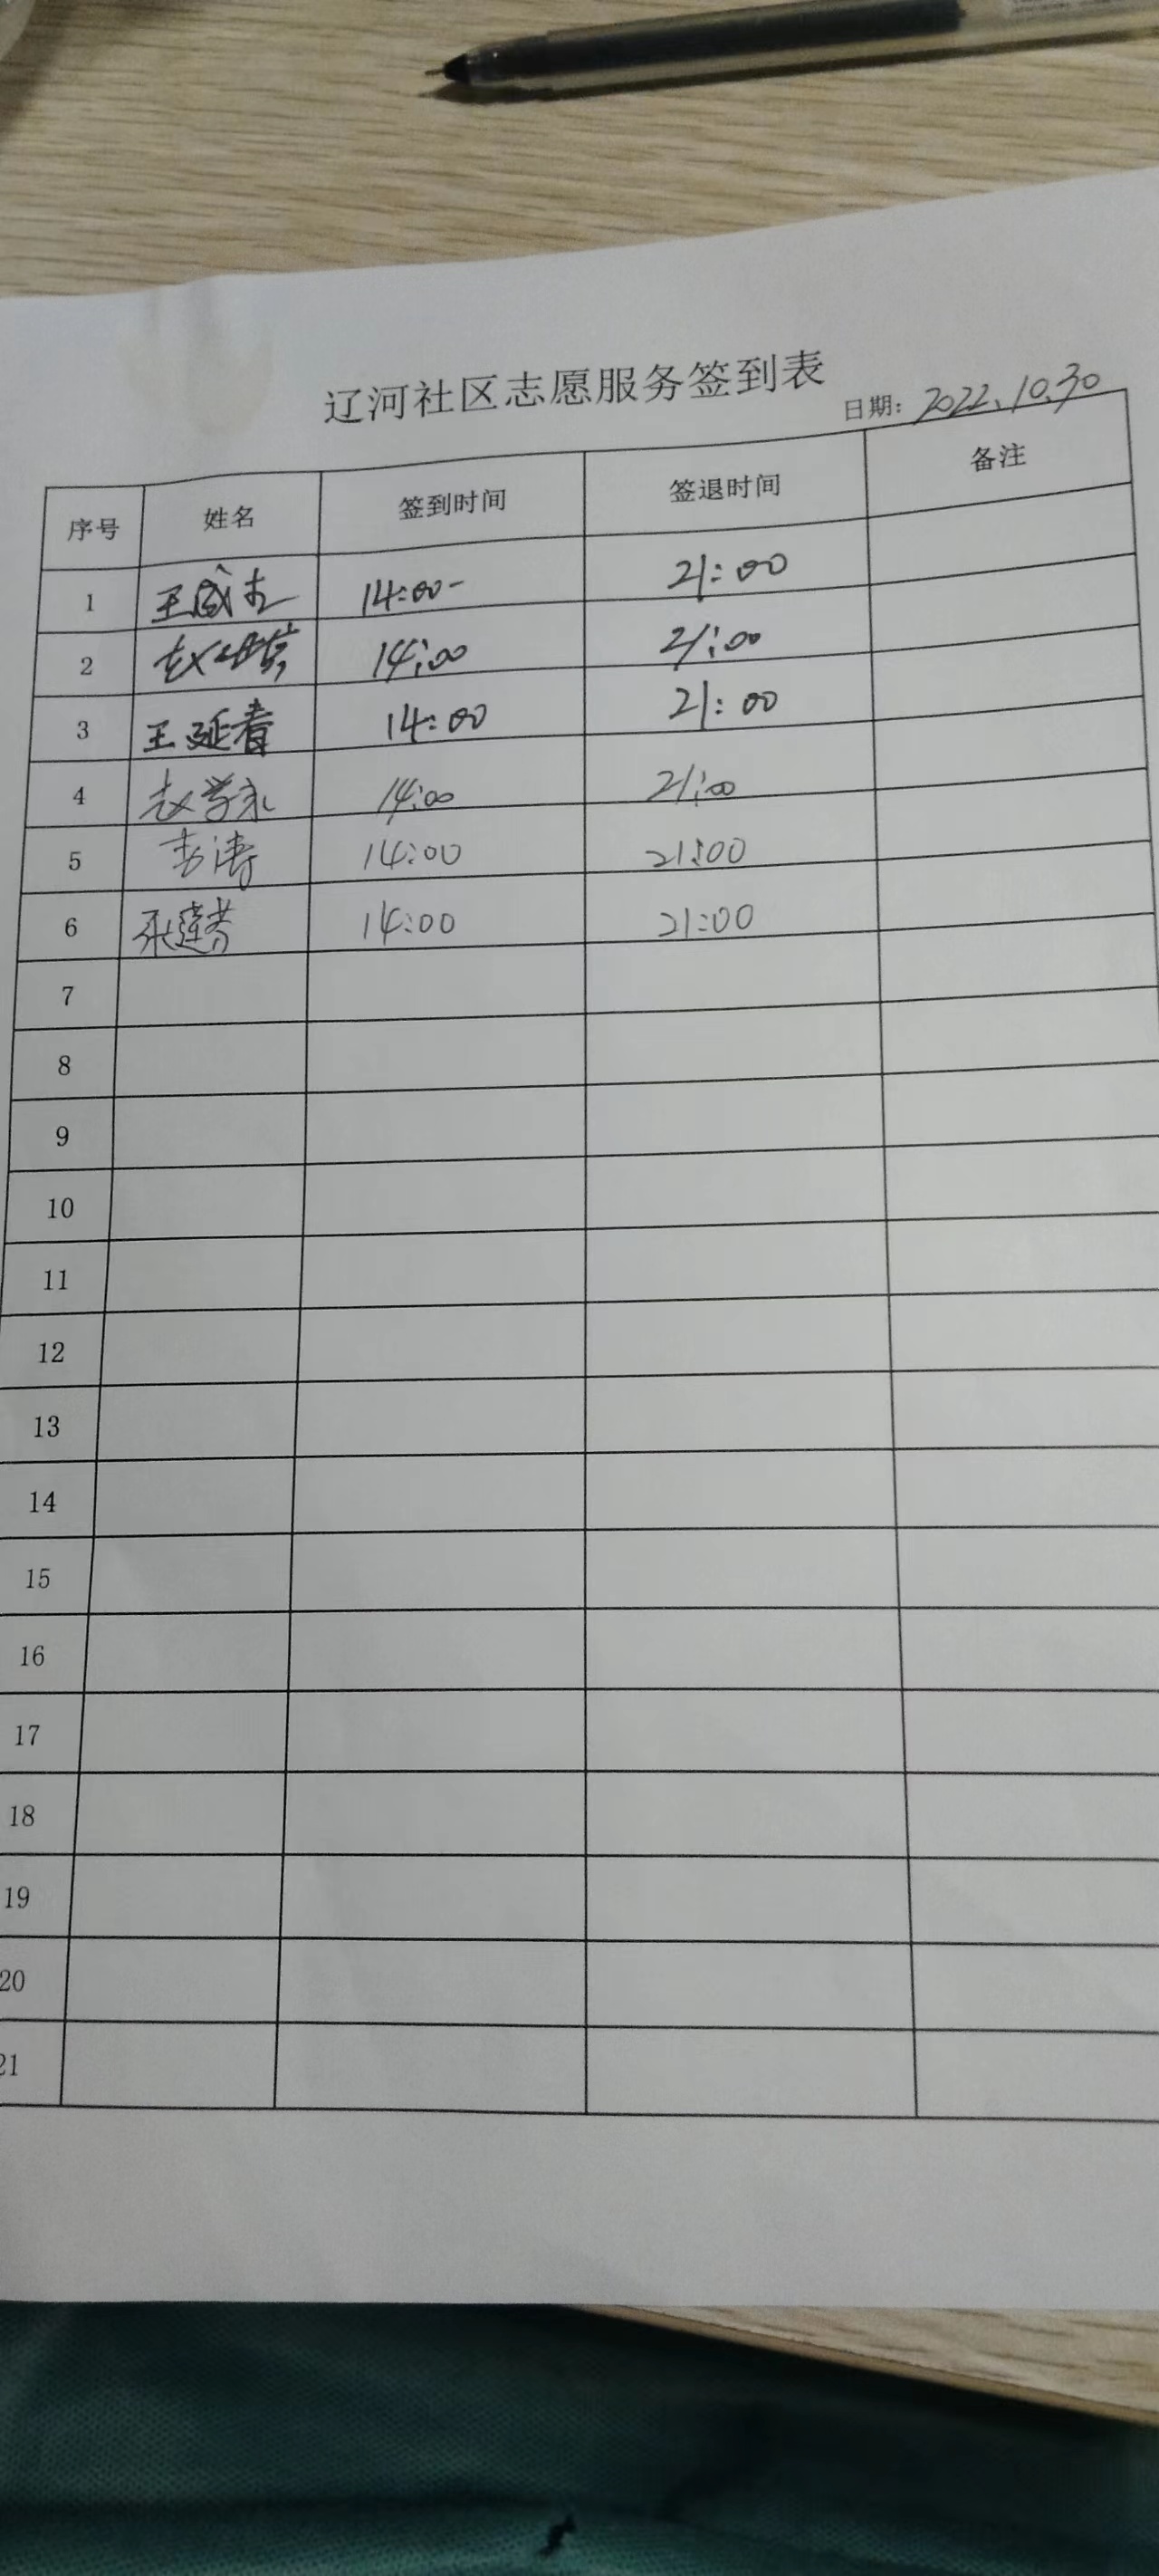 辽河社区志愿服务签到表
日期: 2022.10.30
序号 姓名 签到时间 签退时间 备注
1 王成杰 14:00- 21:00
2 赵 14:00 21:00
3 王延春 14:00 21:00
4 赵学永 14:00 21:00
5 李涛 14:00 21:00
6 14:00 21:00
7
8
9
10
11
12
13
14
15
16
17
18
19
20
21